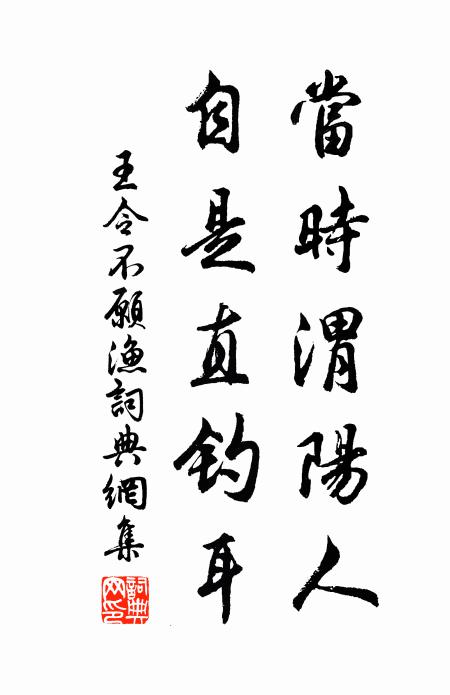 當時渭陽人
自是直鈎耳
王令不願漁詞典網集
詞典網印